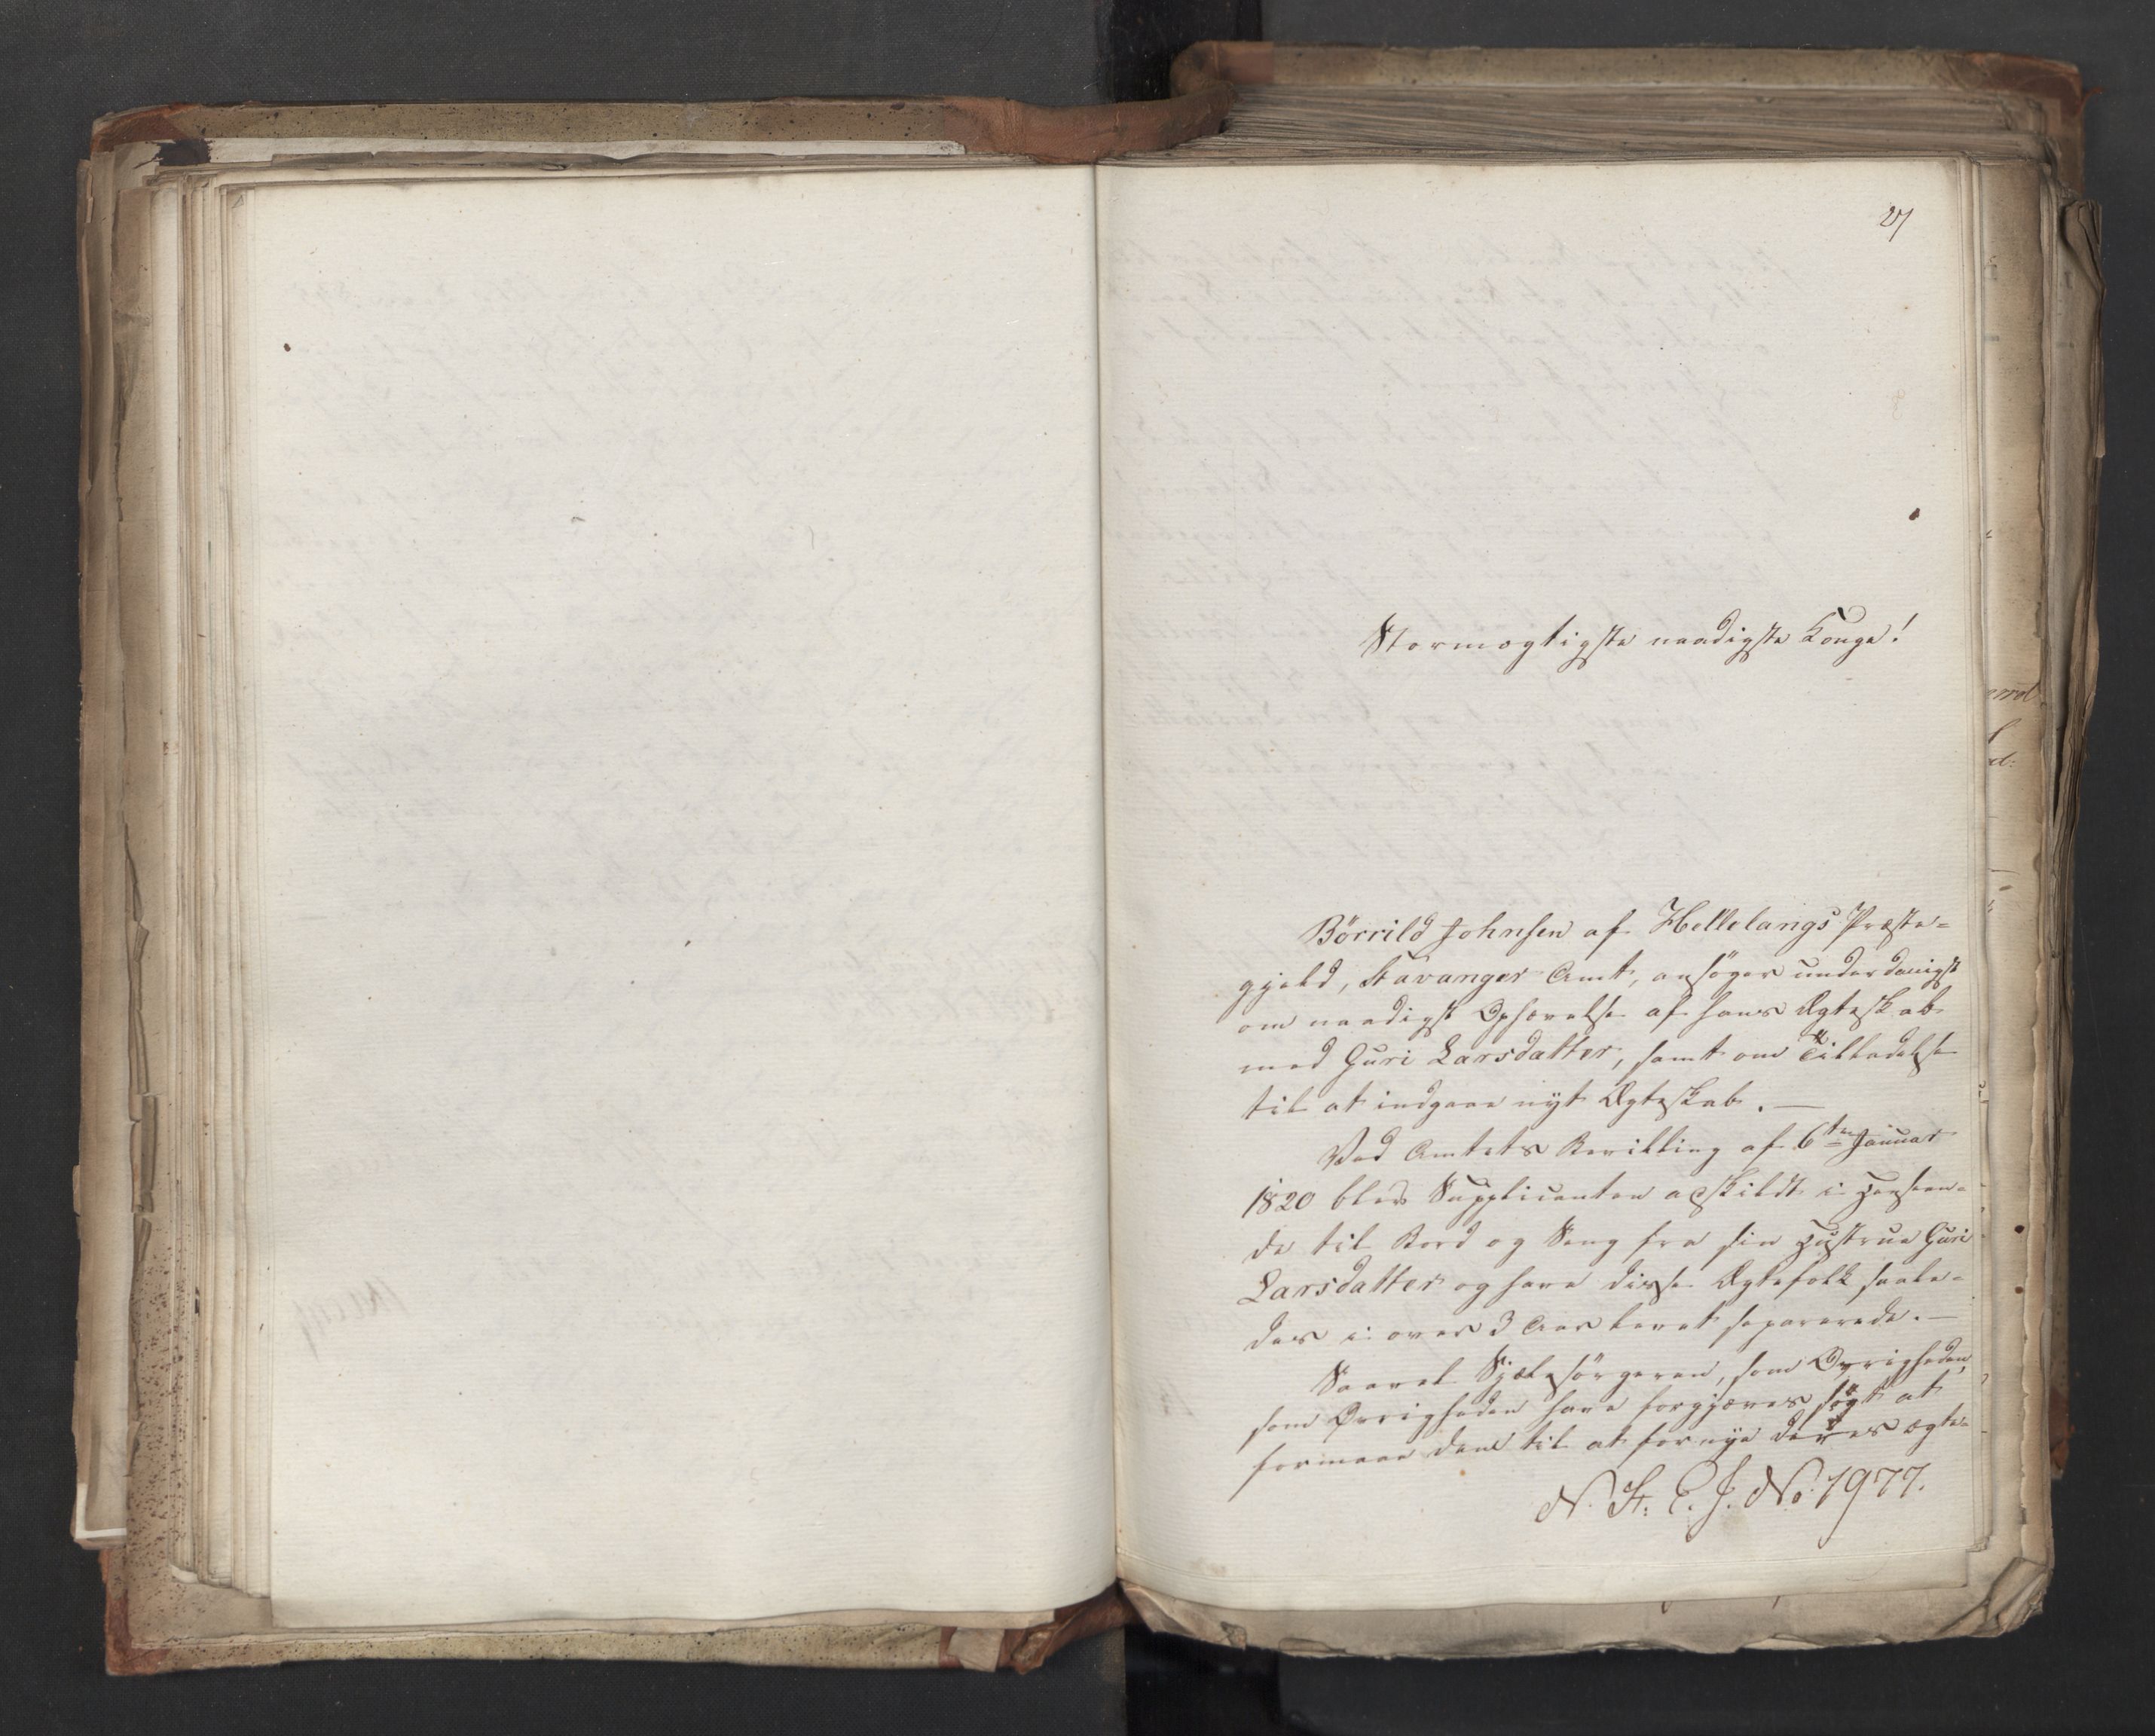 27
Stormægtigste naadigste Konge!
Börrild Johnsen af Hellelangs Præste-
gjeld, Stavanger Amt, ansøger underdanigst
om naadigst Ophævelse af hans Ægteskab
med Guri Larsdatter, samt om Tilladelse
til at indgaae nyt Ægteskab. —
Ved Amtets Bevilling af 6te Januar
1820 blev Supplicanten adskildt i Henseen-
de til Bord og Seng fra sin Hustrue Guri
Larsdatter og have disse Ægtefolk saale-
des i over 3 Aar levet separerede. —
Saavel Sjælesørgeren, som Øvrigheden,
som Øvrigheden have forgjæves søgt at
formaae dem til at fornye deres ægte-
N. St. E. J. No 1977.